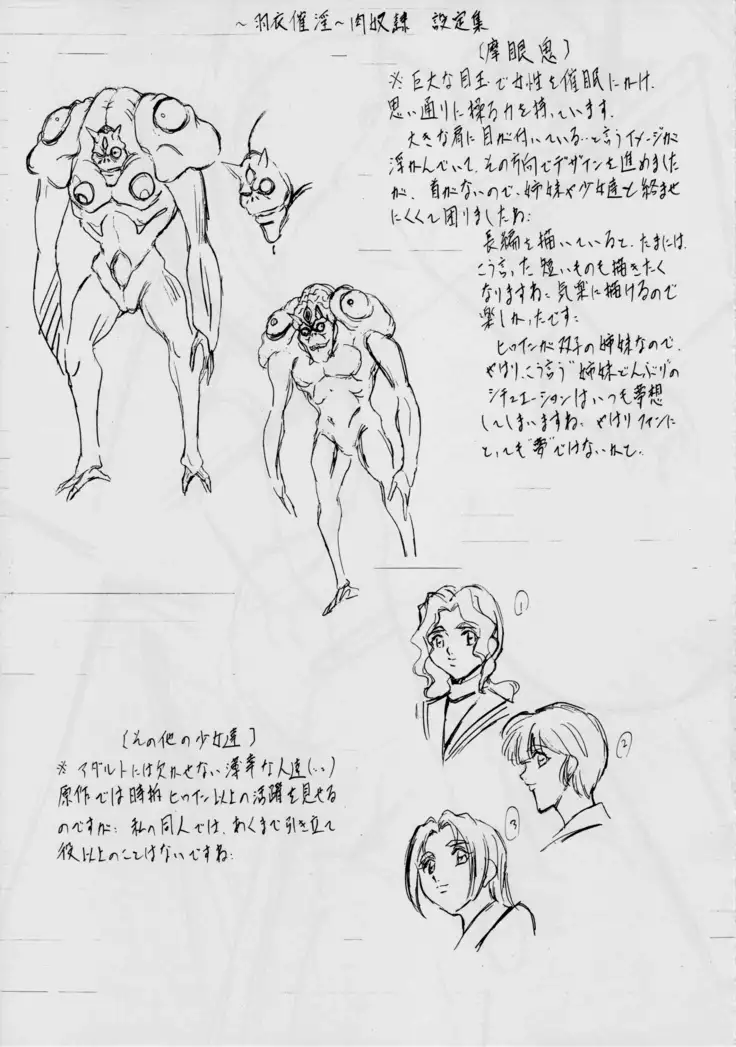 ～羽衣催淫～肉奴隷 設定集
(摩眼鬼)
※巨大な目玉で女性を催眠にかけ、
思い通りに操る力を持っています。
大きな肩に目が付いている…と言うイメージが
浮かんでいて、その方向でデザインを進めました
が、首がないので、姉妹や少女達と絡ませ
にくくて困りましたね…
長編を描いていると、たまには、
こう言った短いものも描きたく
なりますね… 気楽に描けるので
楽しかったです…
ヒロインが双子の姉妹なので、
やはり、こう言う"姉妹どんぶり"の
シチュエーションはいつも夢想
してしまいますね。やはりファンに
とっても"夢"ではないかと。
①
②
③
(その他の少女達)
※アダルトには欠かせない薄幸な人達(…)
原作では時折ヒロイン以上の活躍を見せる
のですが… 私の同人では、あくまで引き立て
役以上のことはないですね…